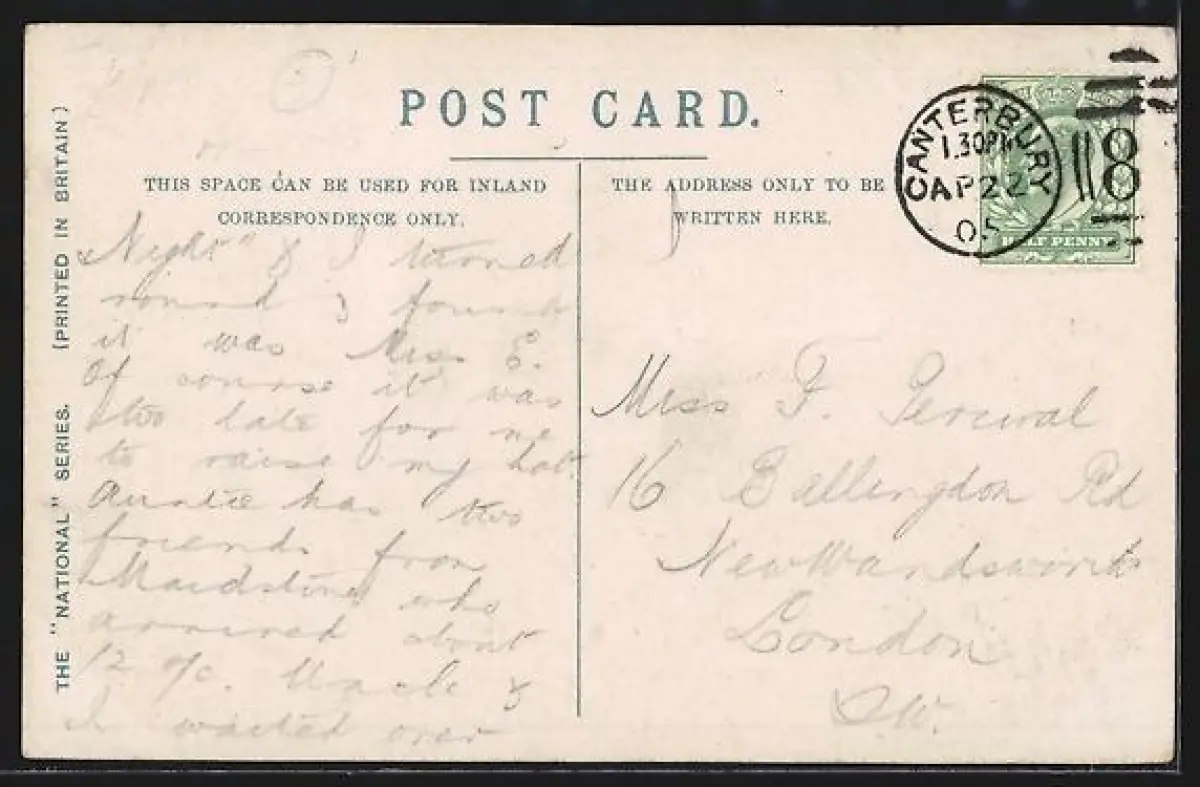 POST CARD.
THIS SPACE CAN BE USED FOR INLAND
CORRESPONDENCE ONLY.
THE ADDRESS ONLY TO BE
WRITTEN HERE.
CANTERBURY
1.30PM
AP 22
05
8
HALF PENNY
THE "NATIONAL" SERIES. (PRINTED IN BRITAIN)
Night" & I turned
round & found
it was Miss E.
Of course it was
too late for me
to raise my hat.
Auntie has two
friends from
Maidstone who
arrived about
12 o/c. Uncle &
I waited over
Miss F. Percival
16 Ballingdon Rd
New Wandsworth
London
S.W.